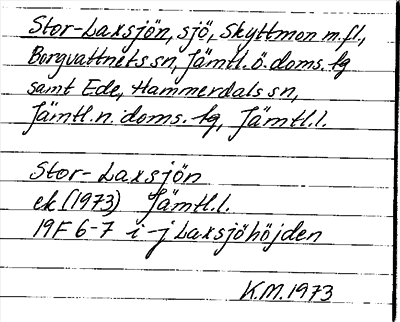 Stor-Laxsjön, sjö, Skyttmon m.fl.,
Borgvattnets sn, Jämtl. ö. doms. lg
samt Ede, Hammerdals sn,
Jämtl. n. doms. lg, Jämtl. l.
Stor-Laxsjön
ek (1973) Jämtl. l.
19F 6-7 i-j Laxsjöhöjden
K.M. 1973